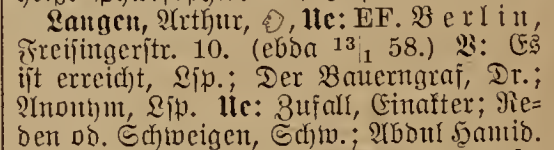 Langen, Arthur, Ue: EF. Berlin,
Freisingerstr. 10. (ebda 13|1 58.) B: Es
ist erreicht, Lsp.; Der Bauerngraf, Dr.;
Anonym, Lsp. Ue: Zufall, Einakter; Re-
den od. Schweigen, Schw.; Abdul Hamid.